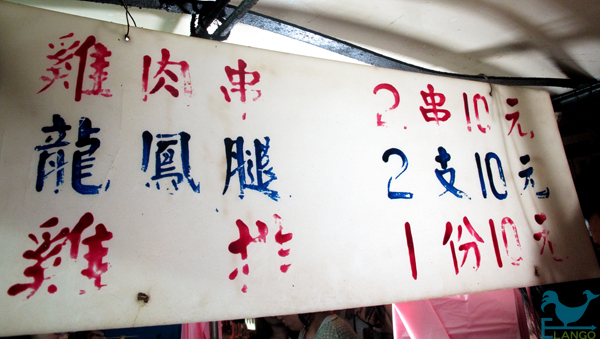 雞肉串 2串10元
龍鳳腿 2支10元
雞排 1份10元
ELANGO